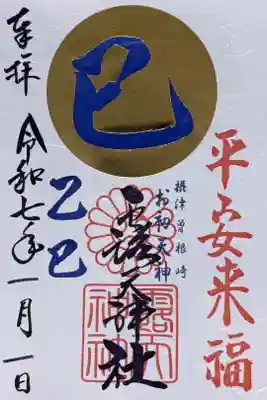 巳
平安来福
摂津曽根崎
お初天神
露天神社
露天神社
乙巳
奉拝
令和七年一月一日